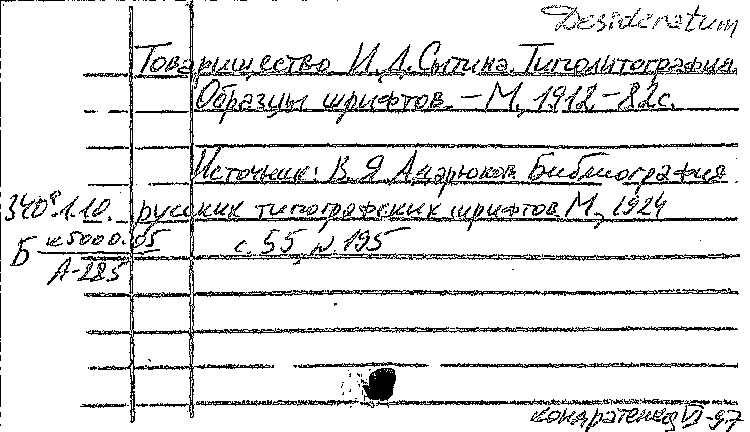 Desideratum
Товарищество И.Д.Сытина. Типолитография.
Образцы шрифтов. – М., 1912. – 82с.
Источник: В.Я.Адарюков. Библиография
русских типографских шрифтов. М., 1924
с. 55, №195
340 1.10.
Б к5000.05
А-285
Кондратенко VI-97